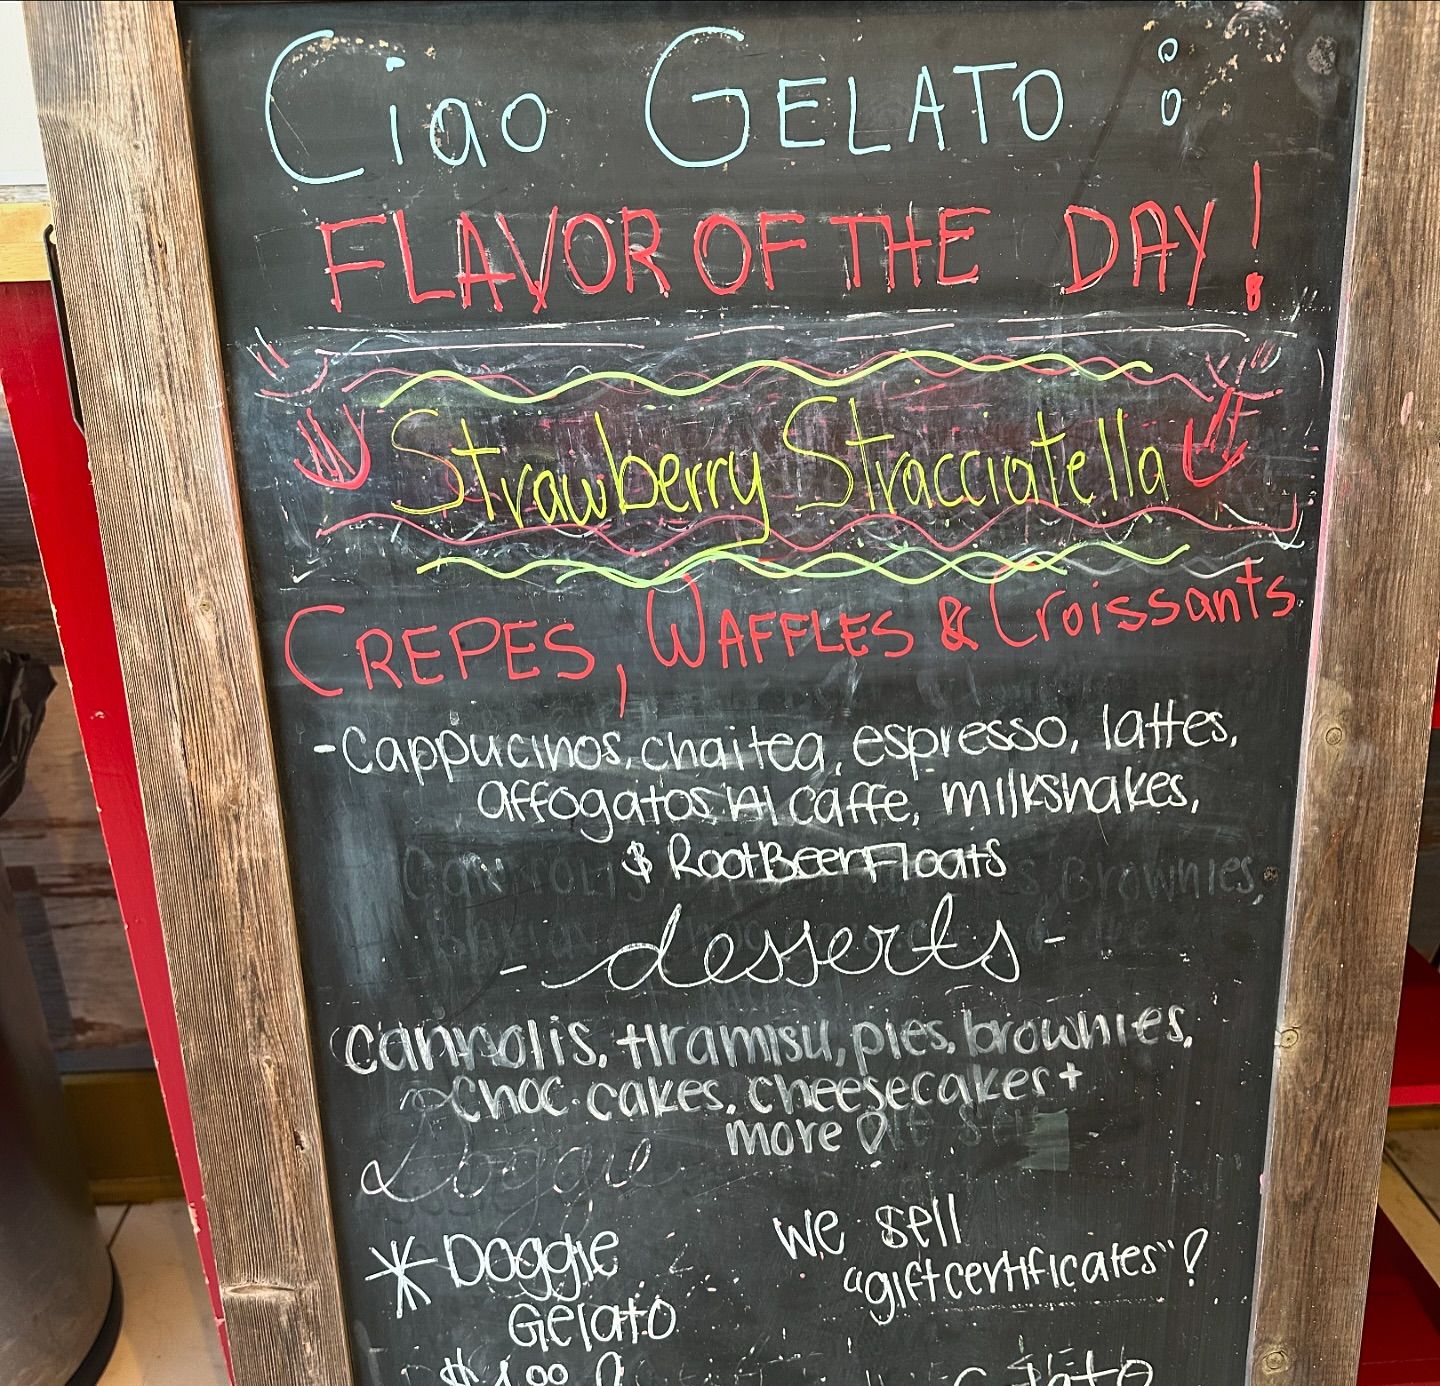 Ciao GELATO :
FLAVOR OF THE DAY!
Strawberry Stracciatella
CREPES, WAFFLES & Croissants
-Cappucinos, chai tea, espresso, lattes,
affogatos Al caffe, milkshakes,
& Root Beer Floats
- desserts -
Cannolis, tiramisu, pies, brownies,
Choc. cakes, cheesecakes +
more!
Doggie
* Doggie
Gelato
we sell
"gift certificates"!